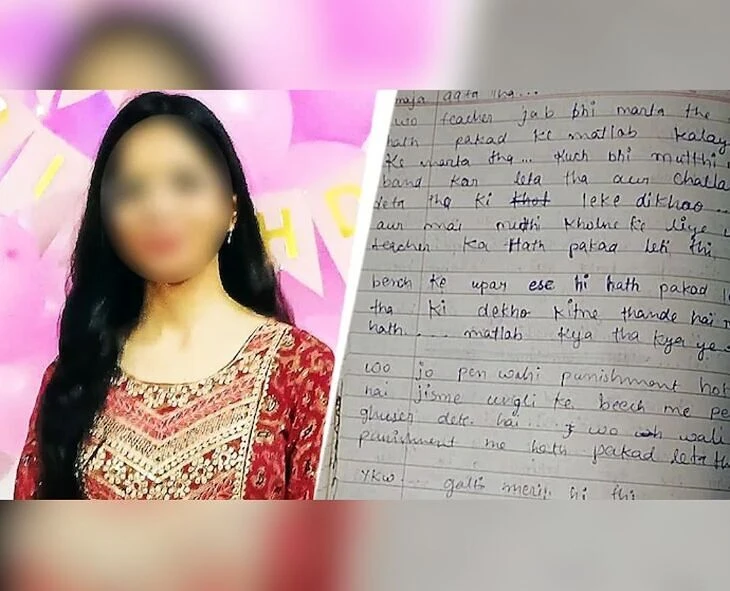 H D
maja aata tha...
wo teacher jab bhi marta the
hath pakad ke matlab kalay
ke marta tha... kuch bhi mutthi
band kar leta tha aur challa
deta tha ki khol leke dikhao...
aur mai muthi kholne ke liye
teacher ka hath pakad leti thi,
bench ke upar ese hi hath pakad
tha ki dekho kitne thande hai
hath.... matlab kya tha kya ye
wo jo pen wahi punishment hot
hai jisme ungli ke beech me pe
ghuser dete hai... wo wali
punishment me hath pakad leta th
YKW... galti meri hi thi